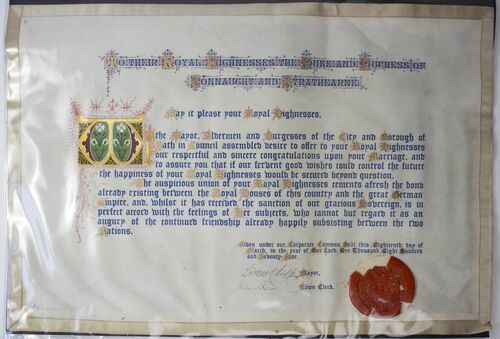 To Their Royal Highnesses The Duke and Duchess of
Connaught and Strathearne.
May it please your Royal Highnesses,
We the Mayor, Aldermen and Burgesses of the City and Borough of
Bath in Council assembled desire to offer to your Royal Highnesses
our respectful and sincere congratulations upon your Marriage, and
to assure you that if our fervent good wishes could control the future
the happiness of your Royal Highnesses would be secured beyond question.
The auspicious union of your Royal Highnesses cements afresh the bond
already existing between the Royal Houses of this country and the great German
Empire, and, whilst it has received the sanction of our gracious Sovereign, is in
perfect accord with the feelings of Her subjects, who cannot but regard it as an
augury of the continued friendship already happily subsisting between the two
Nations.
Given under our Corporate Common Seal, this Eighteenth day of
March, in the year of Our Lord, One Thousand Eight Hundred
and Seventy-Nine.
Mayor,
Town Clerk.